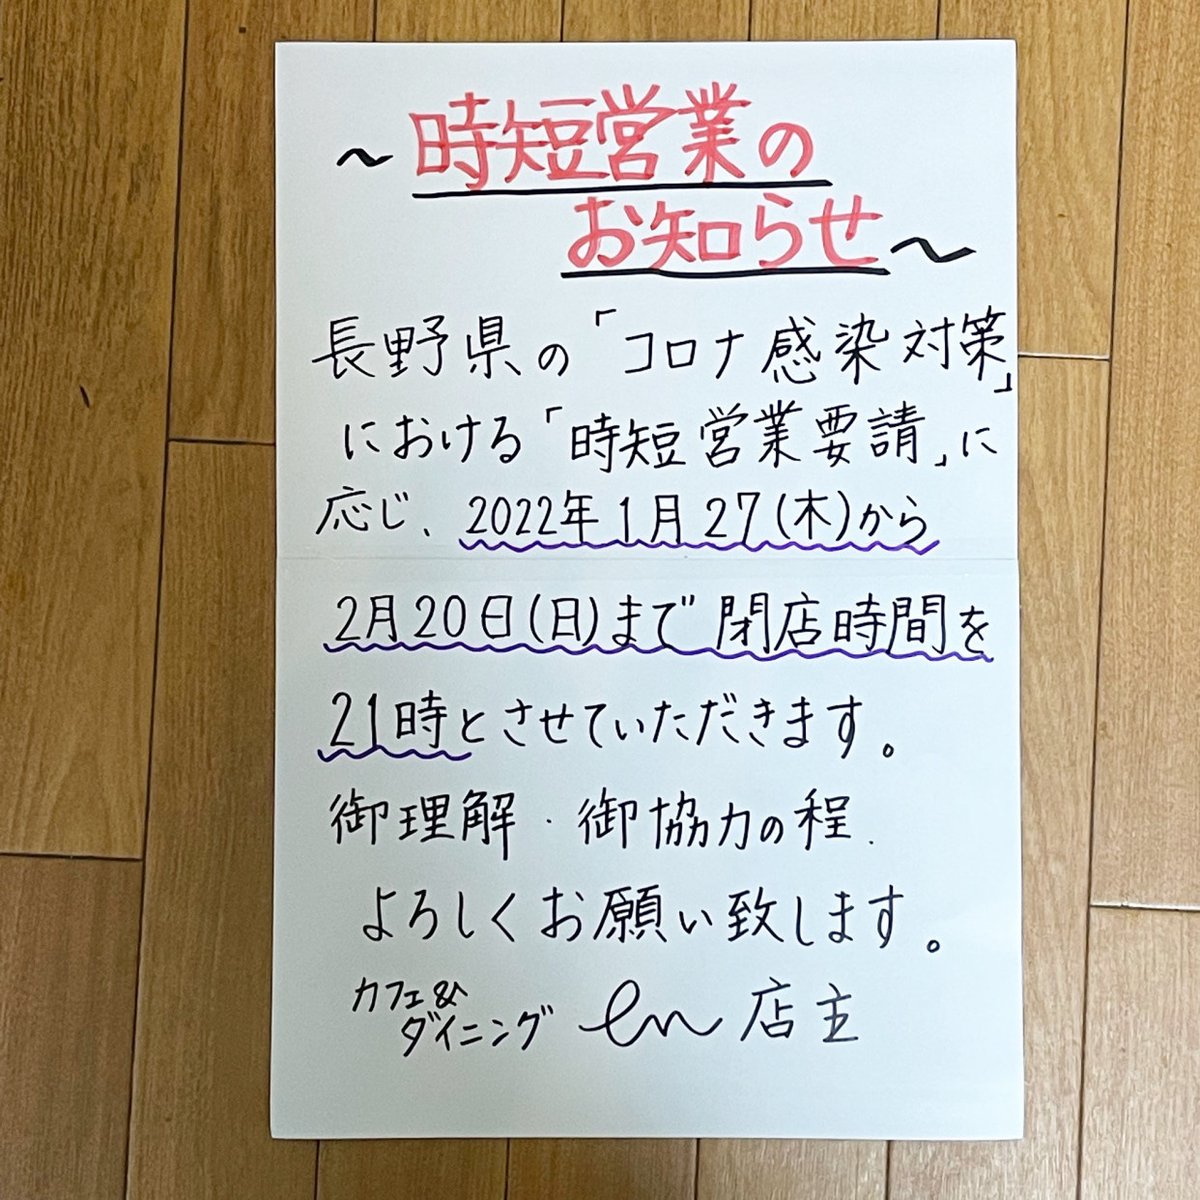 〜時短営業の
お知らせ〜
長野県の「コロナ感染対策」
における「時短営業要請」に
応じ、2022年1月27(木)から
2月20日(日)まで閉店時間を
21時とさせていただきます。
御理解・御協力の程、
よろしくお願い致します。
カフェ&
ダイニング en 店主